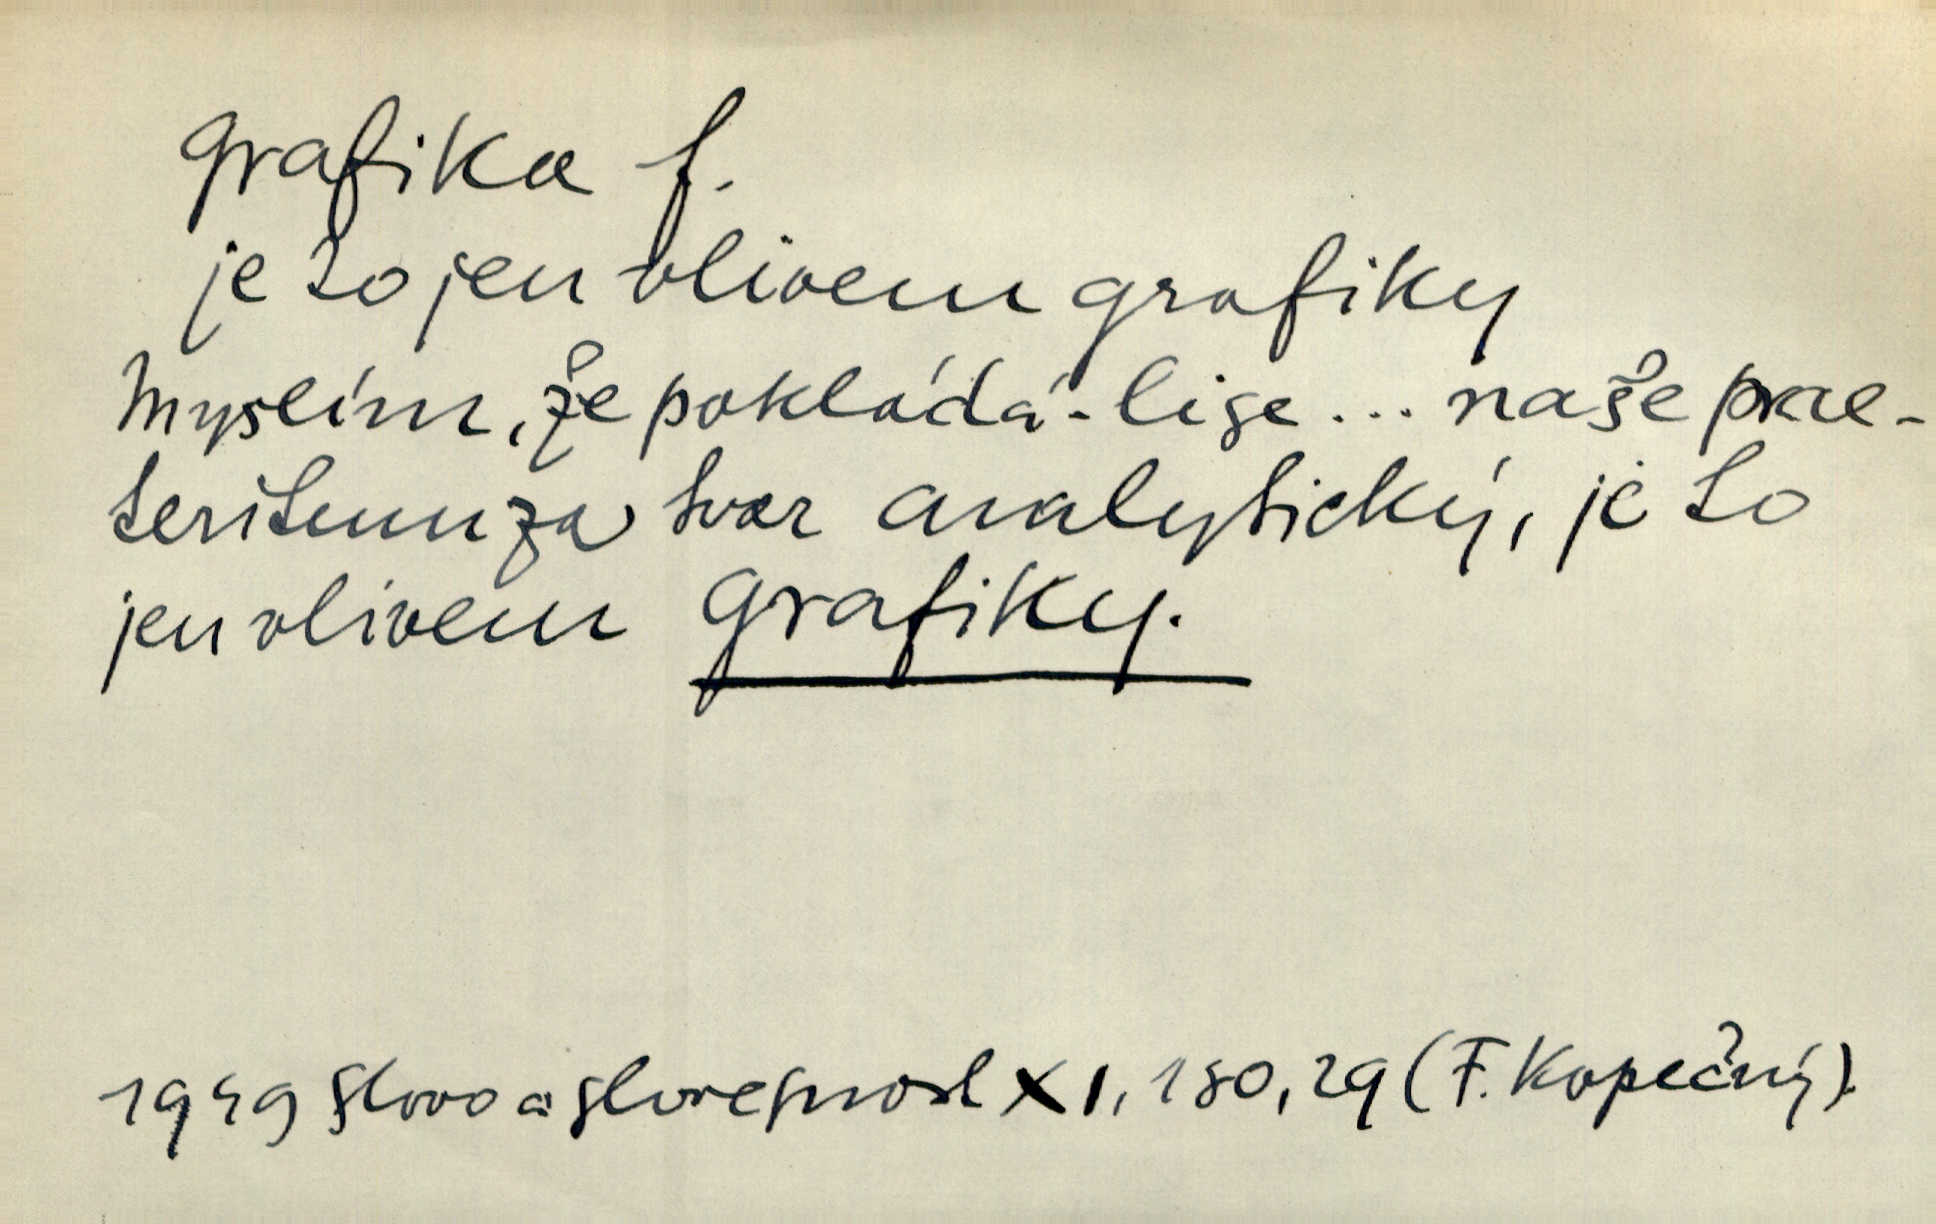 grafika f.
je to jen vlivem grafiky
Myslím, že pokládá-li se... naše prae-
teritum za tvar analytický, je to
jen vlivem grafiky.
1949 Slovo a slovesnost XI, 180, 29 (F. Kopečný).